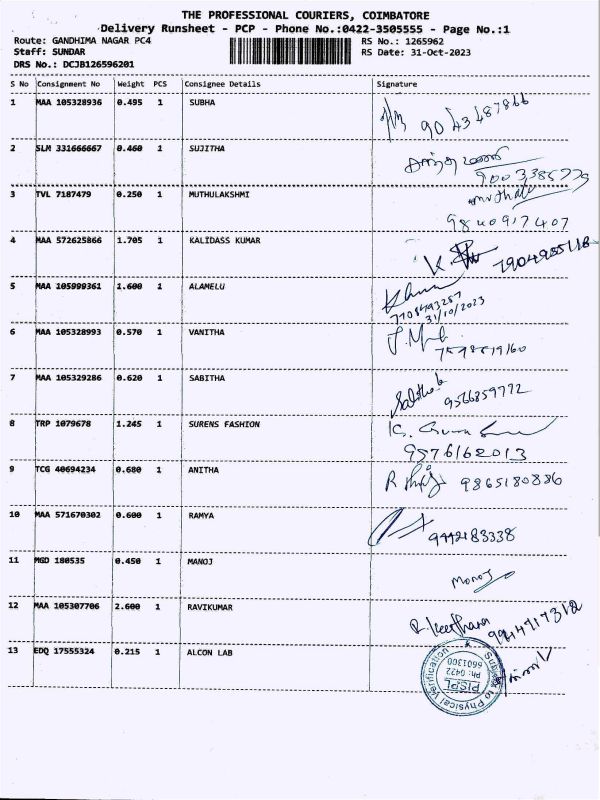 THE PROFESSIONAL COURIERS, COIMBATORE
Delivery Runsheet - PCP - Phone No.:0422-3505555 - Page No.:1
Route: GANDHIMA NAGAR PC4 RS No.: 1265962
Staff: SUNDAR RS Date: 31-Oct-2023
DRS No.: DCJB126596201
S No Consignment No Weight PCS Consignee Details Signature
1 MAA 105328936 0.495 1 SUBHA
2 SLM 331666667 0.460 1 SUJITHA
9003385779
3 TVL 7187479 0.250 1 MUTHULAKSHMI
9840917407
4 MAA 572625866 1.705 1 KALIDASS KUMAR
5 MAA 105999361 1.600 1 ALAMELU
31/10/2023
6 MAA 105328993 0.570 1 VANITHA
7 MAA 105329286 0.620 1 SABITHA
9566859772
8 TRP 1079678 1.245 1 SURENS FASHION
9576162013
9 TCG 40694234 0.680 1 ANITHA 9865180886
10 MAA 571670302 0.600 1 RAMYA
9442183338
11 MGD 180535 0.450 1 MANOJ
Manoj
12 MAA 105307706 2.600 1 RAVIKUMAR
R. Keerthana
13 EDQ 17555324 0.215 1 ALCON LAB
Subject to Physical Verification
PISPL
Ph: 0422
6601300